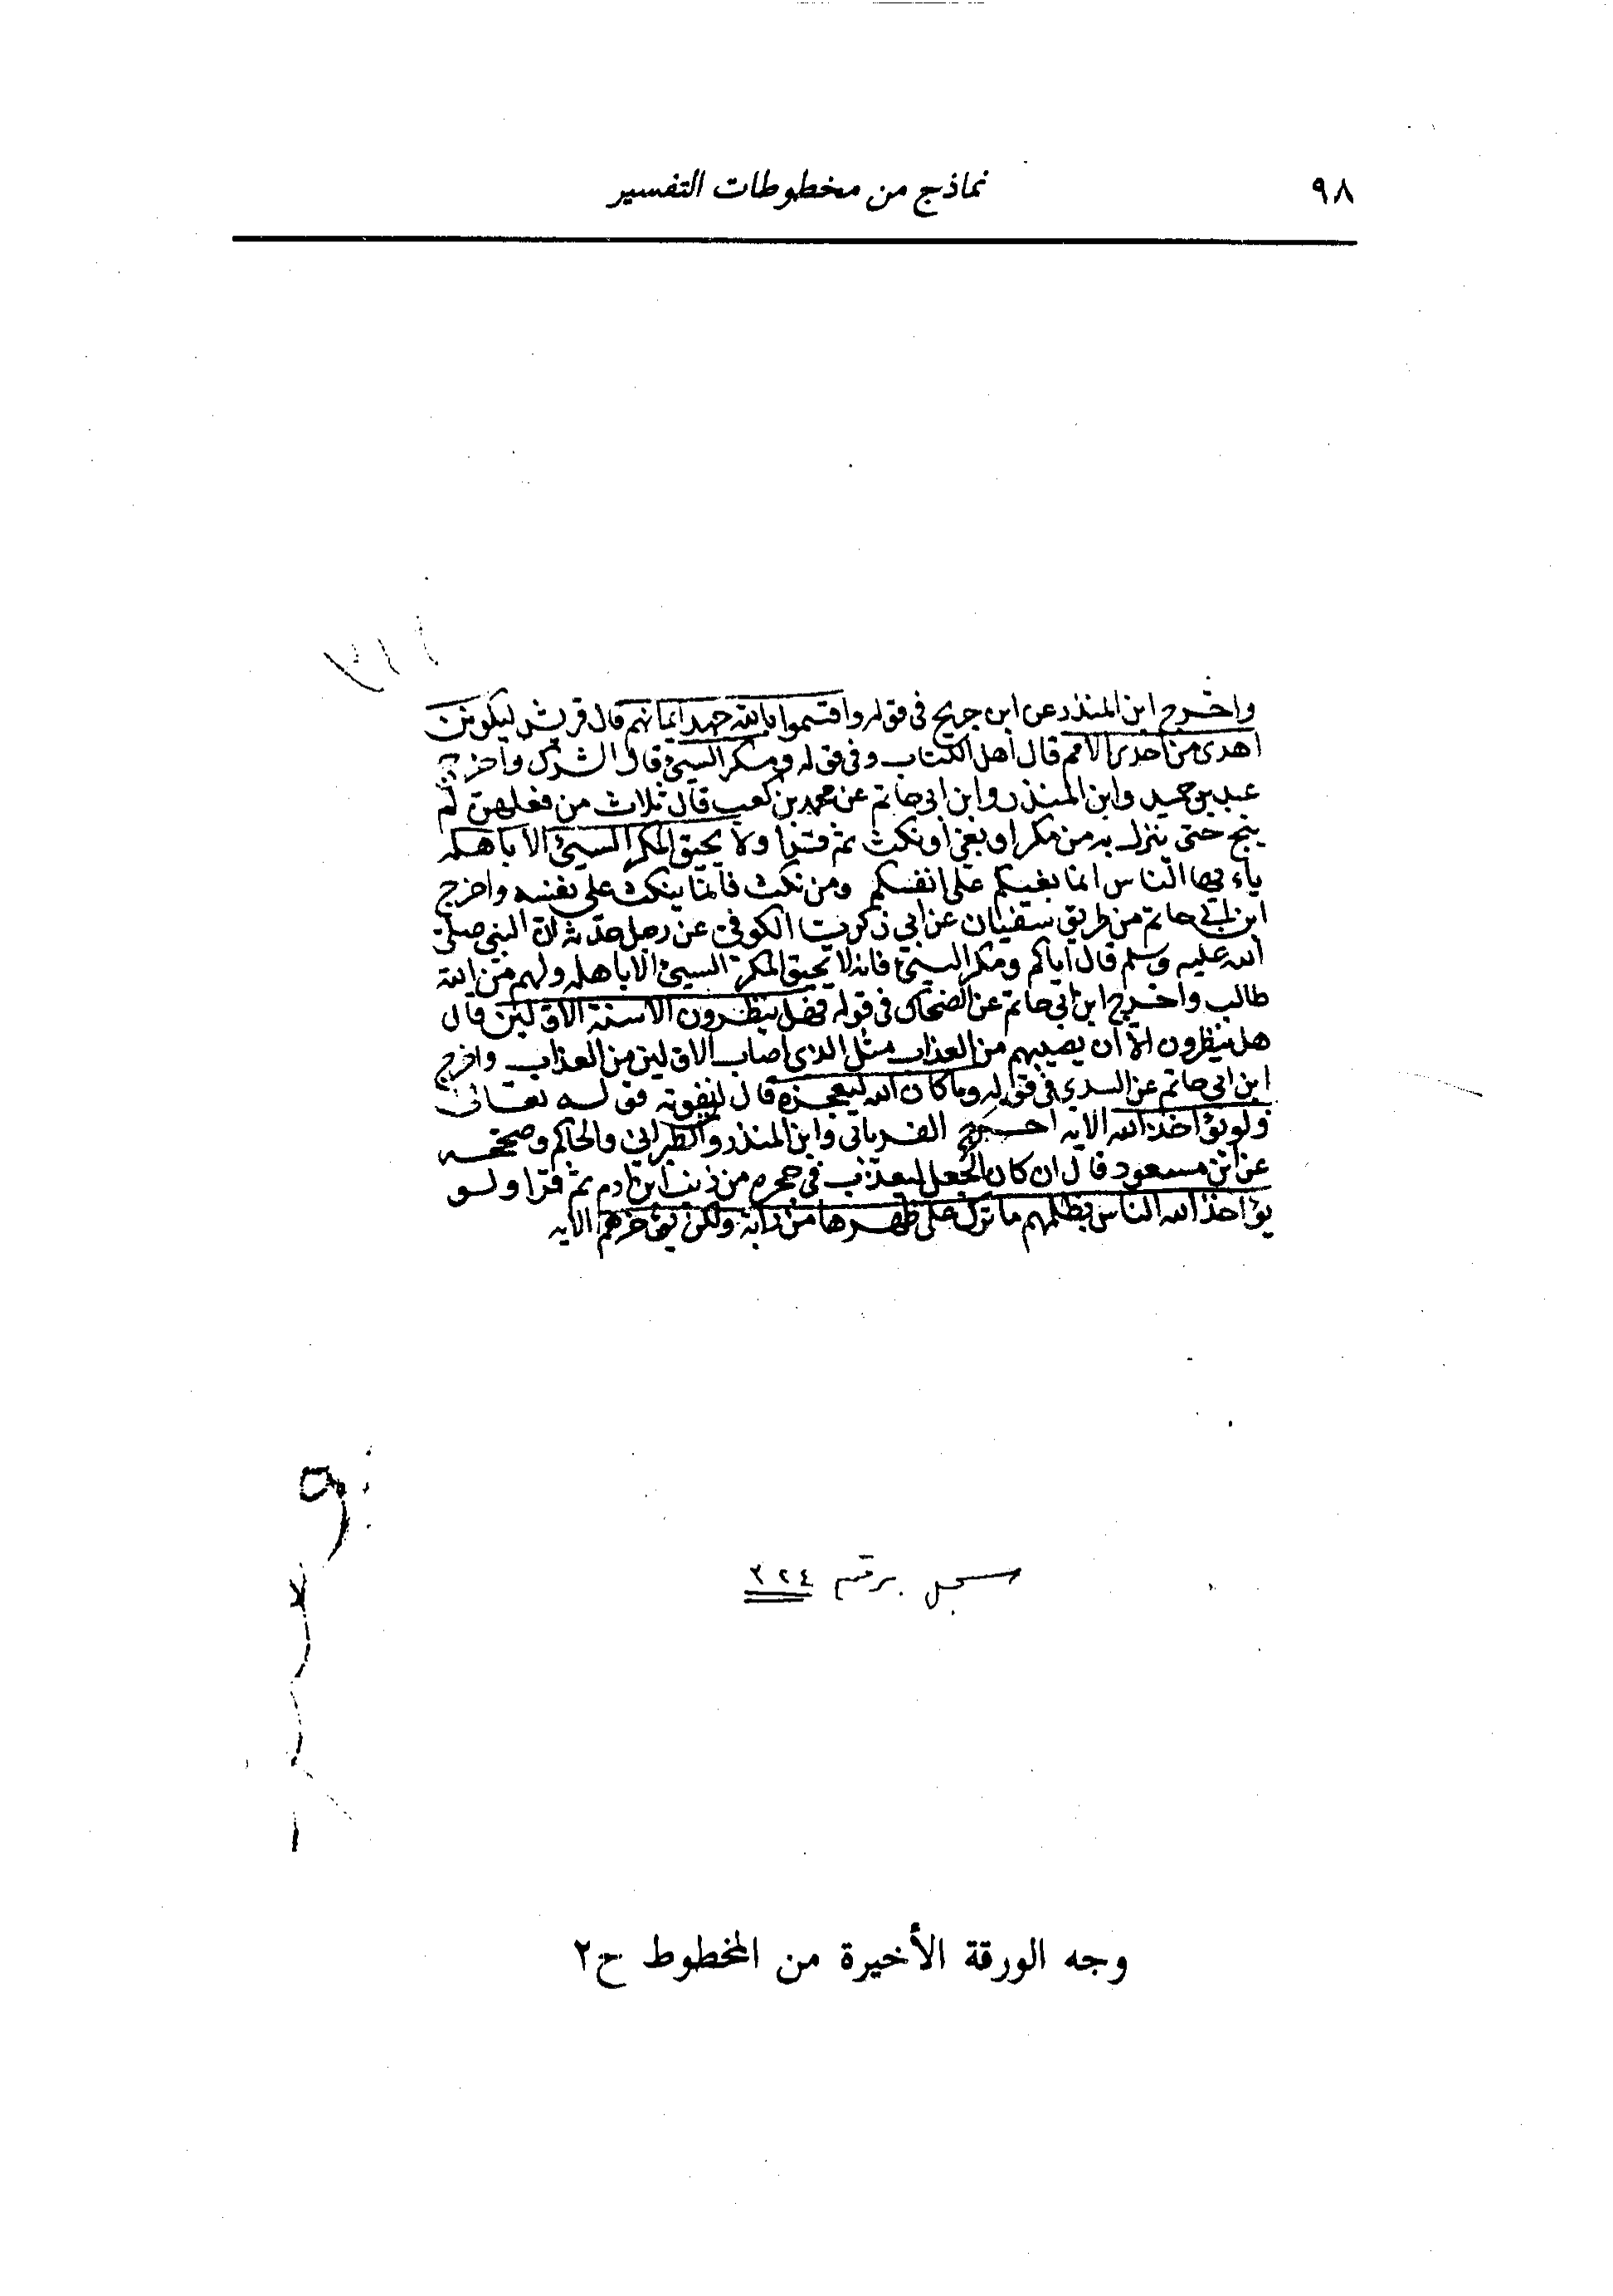 ٩٨
نماذج من مخطوطات التفسير
واخرج ابن المنذر عن ابن جريج في قوله واقسموا بالله جهد ايمانهم قال قريش ليكونن
اهدى من احدى الامم قال اهل الكتاب وفي قوله ومكر السيئ قال الشرك واخرج
عبد بن حميد وابن المنذر وابن ابي حاتم عن محمد بن كعب قال ثلاث من فعلهن لم
ينج حتى ينزل به من مكر او بغي او نكث ثم قرأ ولا يحيق المكر السيئ الا باهله
يا ايها الناس انما بغيكم على انفسكم ومن نكث فانما ينكث على نفسه واخرج
ابن ابي حاتم من طريق سفيان عن ابي زكريا الكوفي عن رجل حدثه ان النبي صلى
الله عليه وسلم قال اياكم ومكر السيئ فانه لا يحيق المكر السيئ الا باهله ولهم من الله
طالب واخرج ابن ابي حاتم عن الضحاك في قوله فهل ينظرون الا سنة الاولين قال
هل ينظرون الا ان يصيبهم من العذاب مثل الذي اصاب الاولين من العذاب واخرج
ابن ابي حاتم عن السدي في قوله وما كان الله ليعجزه قال ليفوته قوله تعالى
ولو يؤاخذ الله الايه اخرج الفريابي وابن المنذر والطبراني والحاكم وصححه
عن ابن مسعود قال ان كان الجعل ليعذب في جحره من ذنب ابن ادم ثم قرا ولو
يؤاخذ الله الناس بظلمهم ما ترك على ظهرها من دابة ولكن يؤخرهم الايه
سجل برقم ٣٢٤
وجه الورقة الأخيرة من المخطوط ح٢